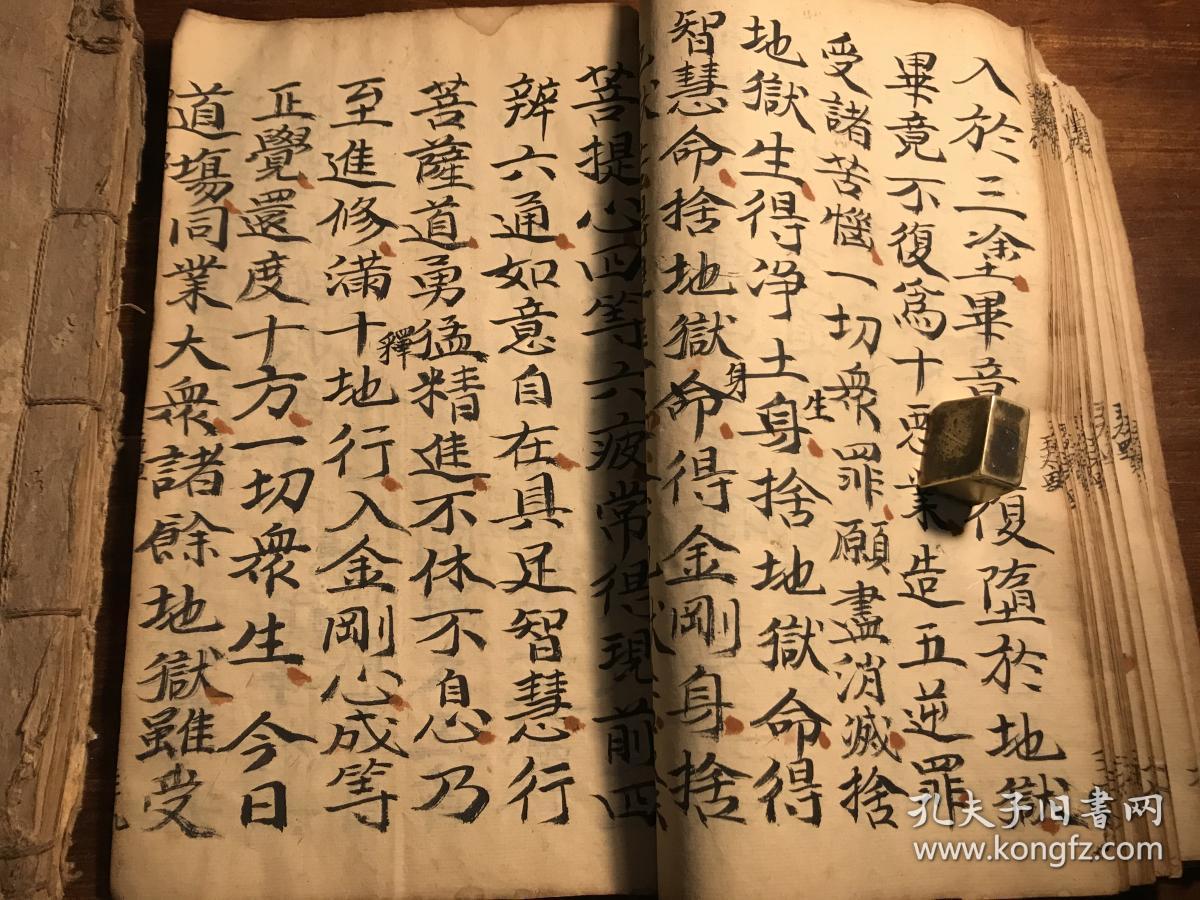 入於三塗畢竟復墮於地獄
畢竟不復爲十惡業造五逆罪
受諸苦惱一切衆罪願盡消滅捨
生
地獄生得净土身捨地獄命得
身
智慧命捨地獄命得金剛身捨
菩提心四等六疲常得現前四
辨六通如意自在具足智慧行
菩薩道勇猛精進不休不息乃
釋
至進修滿十地行入金剛心成等
正覺還度十方一切衆生 今日
道場同業大衆諸餘地獄雖受
孔夫子旧书网
www.kongfz.com